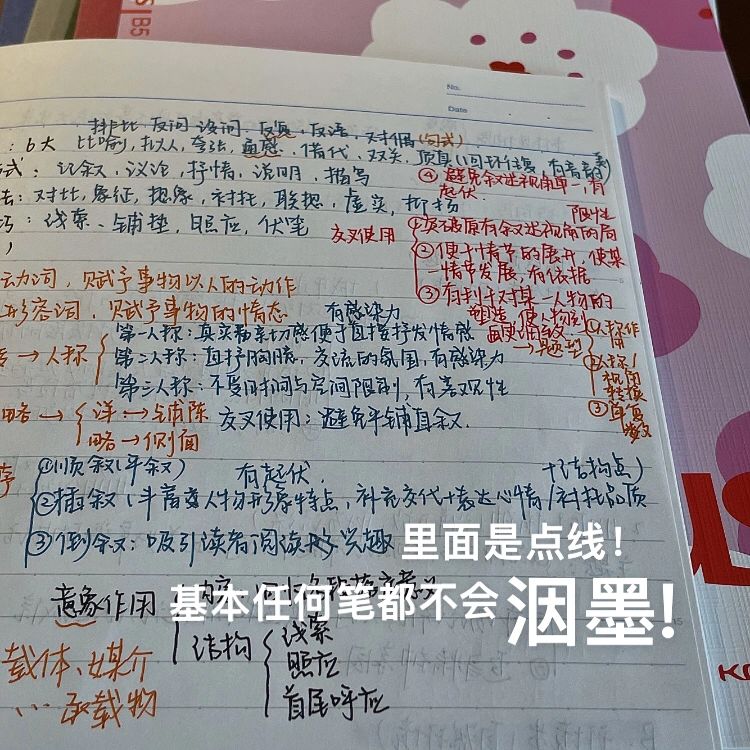 B5
No.
Date
排比,反问,设问,反复,反语,对偶(句式)
:6大 比喻,拟人,夸张,通感,借代,双关,顶真(回环往复,有音韵美)
式:记叙,议论,抒情,说明,描写
④避免叙述视角单一,有起伏.
法:对比,象征,想象,衬托,联想,虚实,抑扬
巧:线索、铺垫、照应,伏笔
交叉使用
①突破原有叙述视角的局限性
②便于情节的展开,使某一情节发展,有依据
③有利于对某一人物的塑造,使人物形
动词,赋予事物以人的动作
形容词,赋予事物的情态
有感染力
→人称
第一人称:真实和亲切感便于直接抒发情感
第二人称:直抒胸臆,交流的氛围,有感染力
第三人称:不受时间与空间限制,有客观性
→题型
①人称作用
②人称/视角转换
略→
详→铺陈
略→侧面
交叉使用:避免平铺直叙.
序
①顺叙(平叙)
有起伏.
+(结构点)
②插叙(丰富人物形象特点,补充交代+表达心情/衬托品质
③倒叙:吸引读者阅读的兴趣
里面是点线!
基本任何笔都不会洇墨!
意象作用
内容
结构
线索
照应
首尾呼应
载体、媒介
...承载物